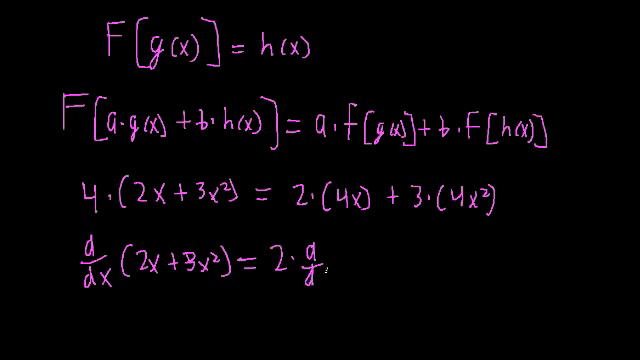 F[g(x)] = h(x)
F[a·g(x) + b·h(x)] = a·F[g(x)] + b·F[h(x)]
4·(2x + 3x²) = 2·(4x) + 3·(4x²)
d/dx (2x + 3x²) = 2·d/d